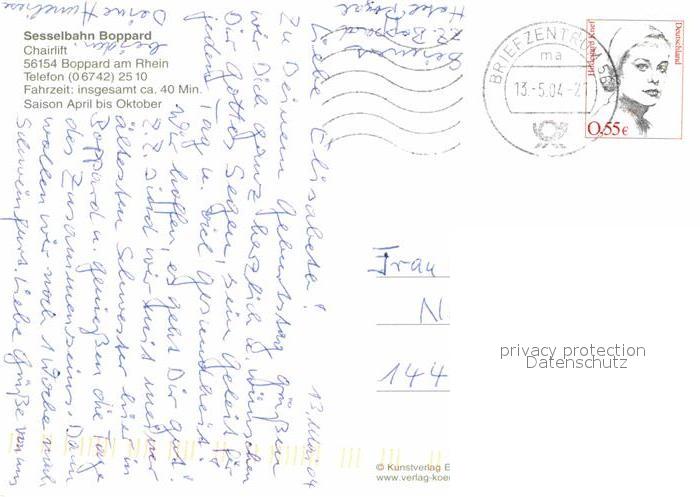 Sesselbahn Boppard
Chairlift
56154 Boppard am Rhein
Telefon (0 67 42) 25 10
Fahrzeit: insgesamt ca. 40 Min.
Saison April bis Oktober
13. Mai 04
Liebe Elisabeth!
Zu Deinem Geburtstag grüßen
wir Dich ganz herzlich u. wünschen
Dir Gottes Segen, sein Geleit für
jeden Tag u. Dich Gesundheit!
Wir hoffen, es geht Dir gut!
Z. Z. sind wir mit meiner
ältesten Schwester hier in
Boppard u. genießen die Tage
des Zusammenseins. Dann
wollen wir noch 1 Woche nach
Schweinfurt. Liebe Grüße von uns
beiden
Deine Hanneliese
Hotel
z.Z. Boppard
BRIEFZENTRUM 56
ma
13.-5.04-21
Hildegard Knef
Deutschland
0,55€
Frau
N
144
privacy protection
Datenschutz
© Kunstverlag E
www.verlag-koe